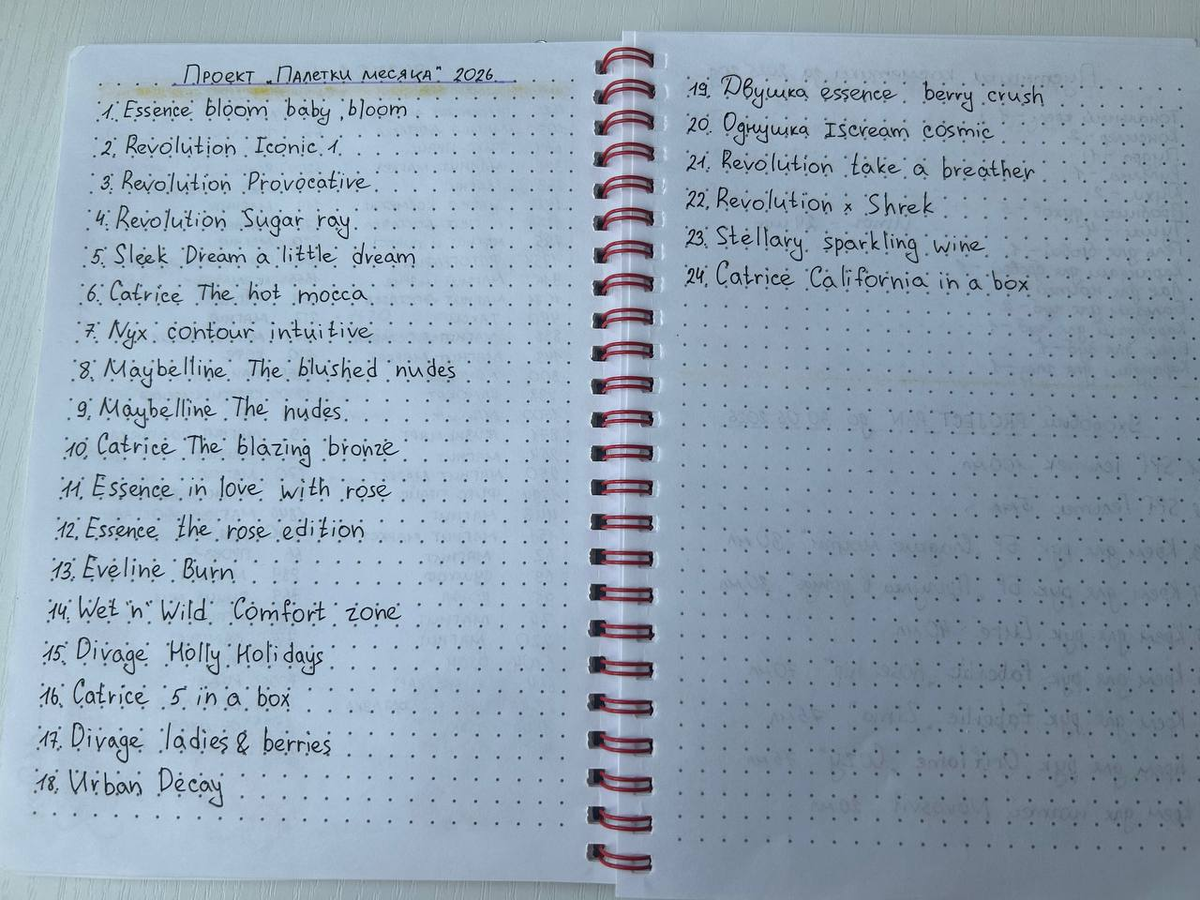 Проект "Палетки месяца" 2026
1. Essence bloom baby bloom
2. Revolution Iconic 1
3. Revolution Provocative
4. Revolution Sugar ray
5. Sleek Dream a little dream
6. Catrice The hot mocca
7. Nyx contour intuitive
8. Maybelline The blushed nudes
9. Maybelline The nudes
10. Catrice The blazing bronze
11. Essence in love with rose
12. Essence the rose edition
13. Eveline Burn
14. Wet "n" Wild Comfort zone
15. Divage Holly Holidays
16. Catrice 5 in a box
17. Divage ladies & berries
18. Urban Decay
19. Двушка essence berry crush
20. Однушка Iscream cosmic
21. Revolution take a breather
22. Revolution x Shrek
23. Stellary sparkling wine
24. Catrice California in a box